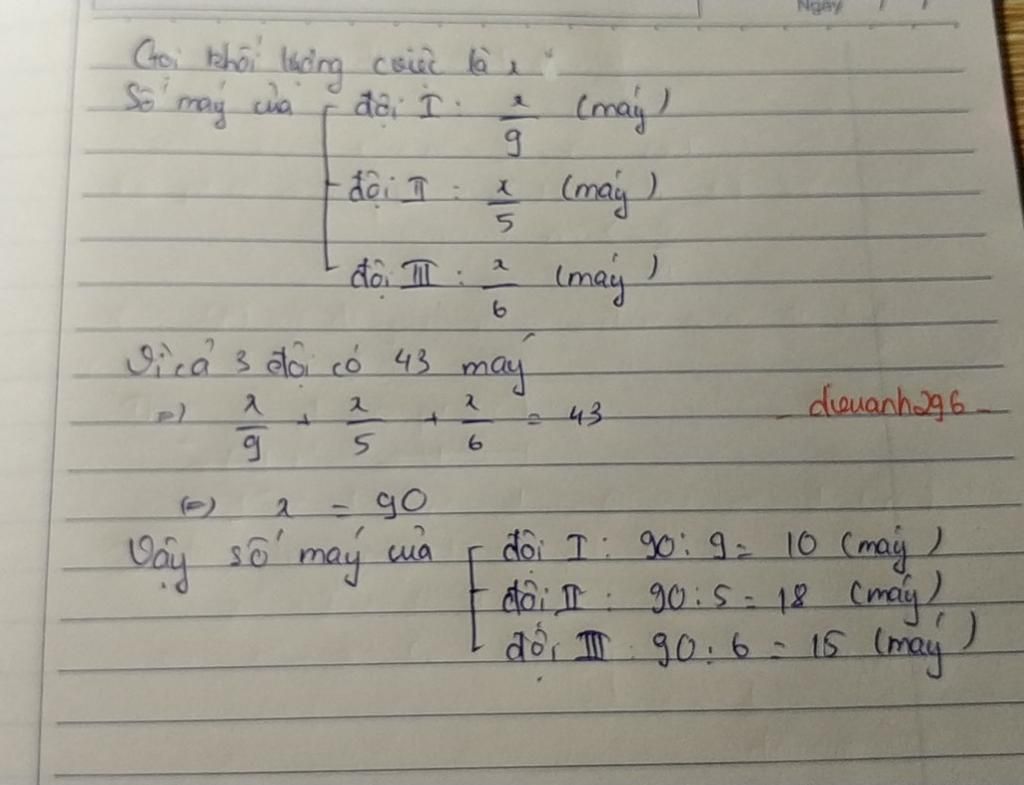 Ngày / /
Gọi khối lượng công việc là x
Số máy của đội I : x/9 (máy)
đội II : x/5 (máy)
đội III : x/6 (máy)
Vì cả 3 đội có 43 máy
=) x/9 + x/5 + x/6 = 43
dieuanh296
(=) x = 90
Vậy số máy của đội I : 90 : 9 = 10 (máy)
đội II : 90 : 5 = 18 (máy)
đội III : 90 : 6 = 15 (máy)